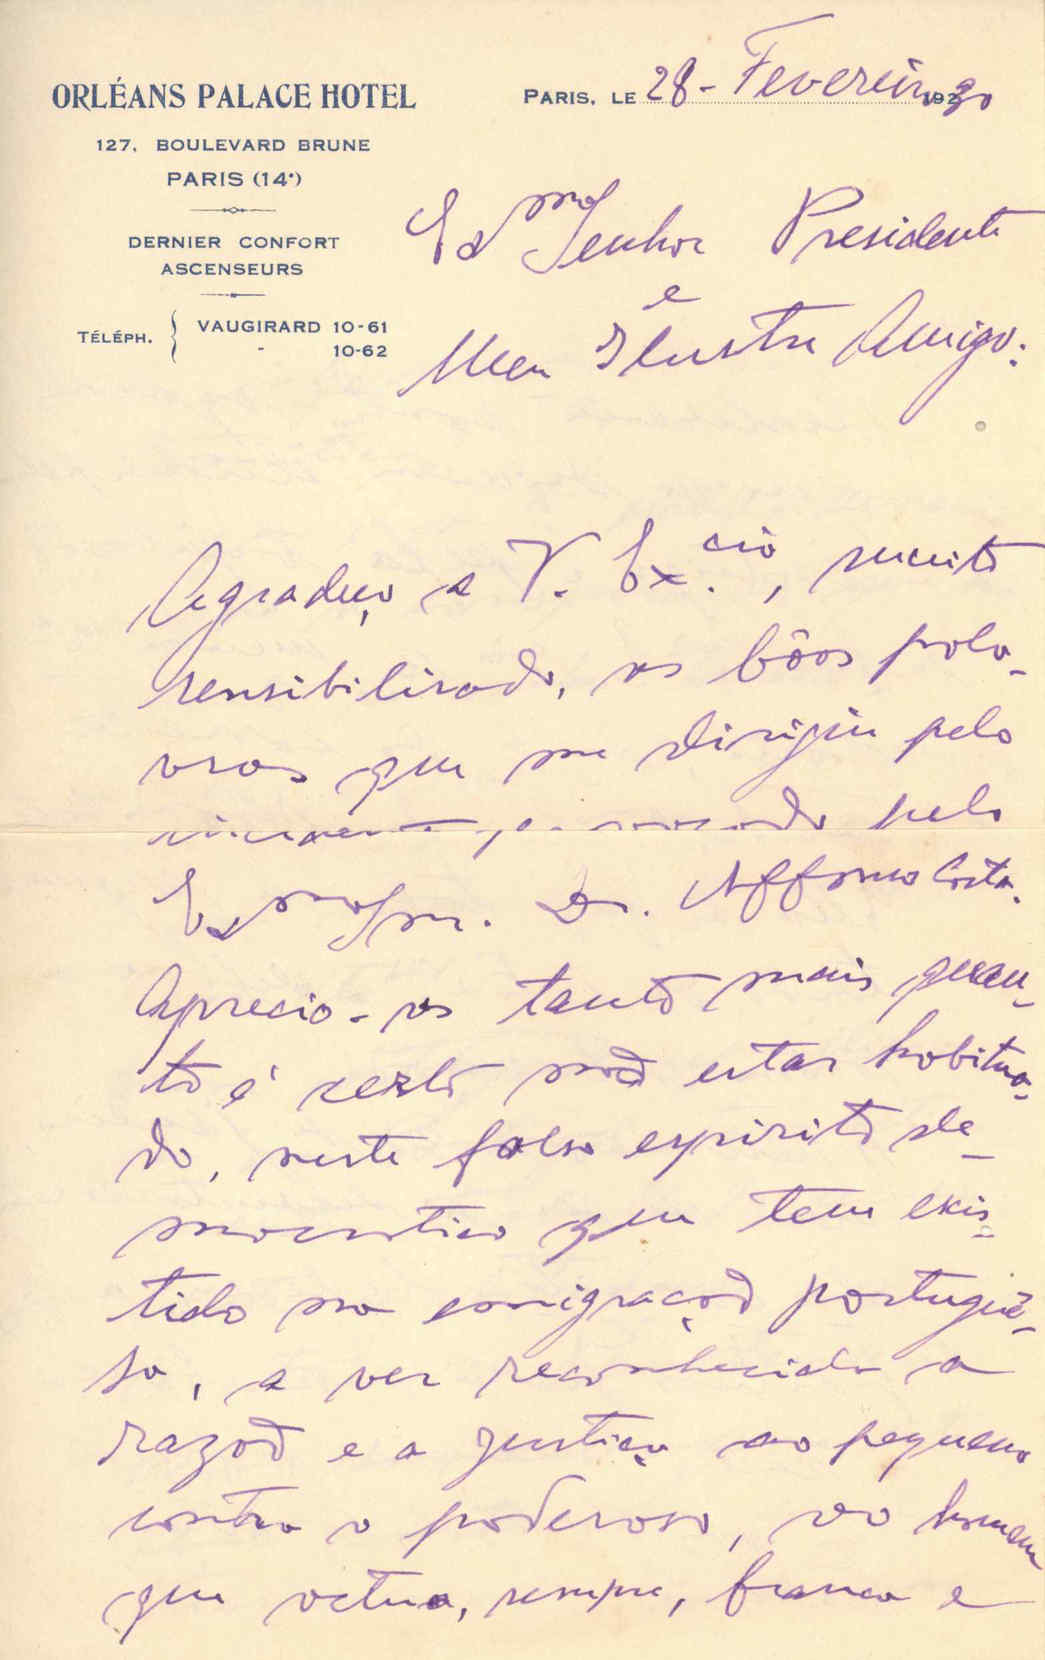 ORLÉANS PALACE HOTEL
127, BOULEVARD BRUNE
PARIS (14ᵉ)
DERNIER CONFORT
ASCENSEURS
TÉLÉPH. { VAUGIRARD 10-61
- 10-62
PARIS, LE 28 - Fevereiro 1930
Exmo Senhor Presidente
e
Meu Ilustre Amigo:
Agradeço a V. Ex.cia, muito
sensibilisado, as bôas pala-
vras que me dirigiu pelo
incidente provocado pelo
Exmo Snr. Dr. Affonso Costa.
Aprecio-as tanto mais quan-
to é certo não estar habitua-
do, neste falso espirito de-
mocratico que tem exis-
tido na emigração portuguê-
sa, a ver reconhecida a
razão e a justiça ao pequeno
contra o poderoso, ao homem
que actua, sempre, franca e